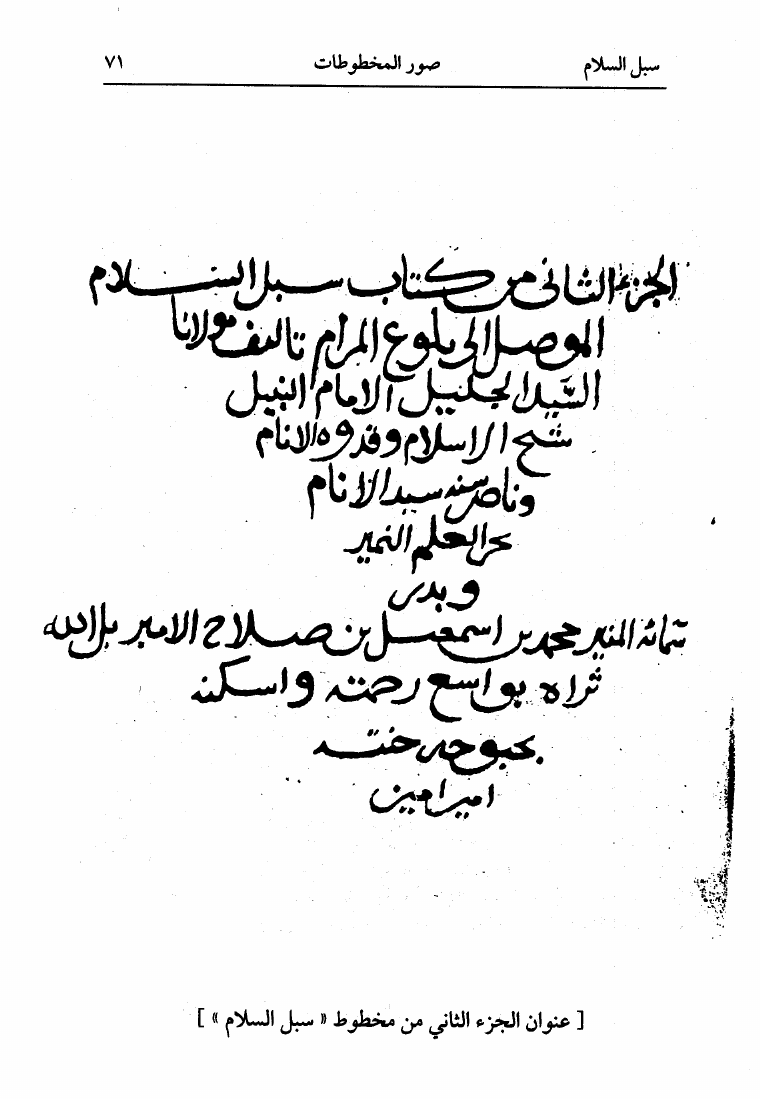 سبل السلام صور المخطوطات ٧١
الجزء الثانى من كتاب سبل السلام
الموصل الى بلوغ المرام تاليف مولانا
السيد الجليل الامام النبيل
شيخ الاسلام وقدوه الانام
وناصر سنه سيد الانام
بحر العلم النمير
وبدر
سمائه المنير محمد بن اسمعيل بن صلاح الامير بل الله
ثراه بواسع رحمته واسكنه
بحبوحه جنته
امين امين
[ عنوان الجزء الثاني من مخطوط « سبل السلام » ]